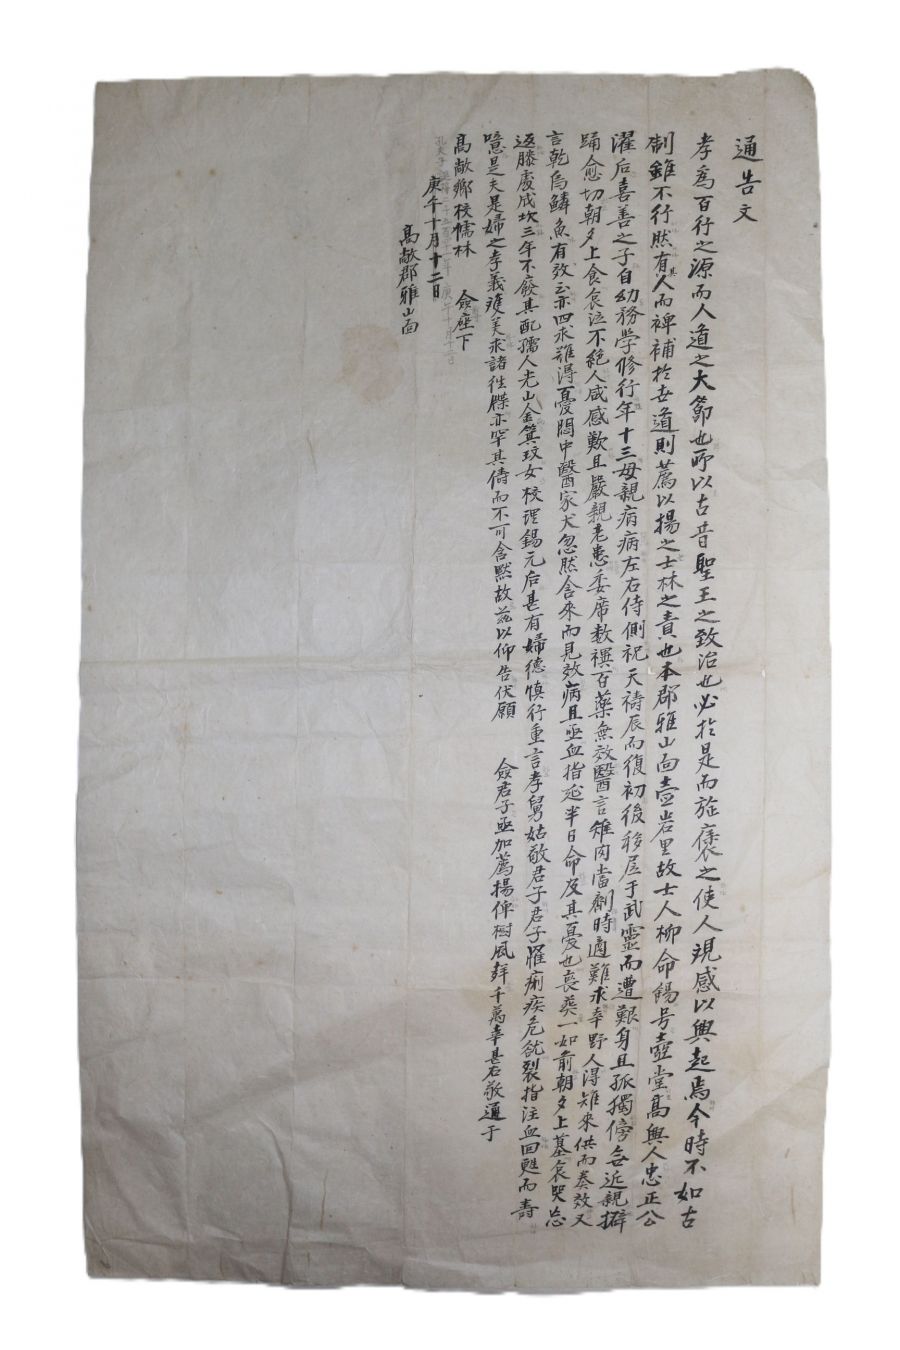 通告文
孝為百行之源而人道之大節也所以古昔聖王之致治也必於是而旌褒之使人視感以興起焉今時不如古
制雖不行然有其人而裨補於世道則薦以揚之士林之責也本郡雅山面壺岩里故士人柳命錫号壺堂高興人忠正公
濯后喜善之子自幼務學修行年十三母親病病左右侍側祝天禱辰而復初後移居于武靈而遭艱身且孤獨傍無近親擗
踊愈切朝夕上食哀泣不絶人咸感歎且嚴親老患委席數禩百藥無效醫言雉肉當劑時適難求幸野人得雉來供而奏效又
言乾烏鱗魚有效云亦四求難得憂悶中醫家犬忽然含來而見效病且亟血指延半日命及其憂也喪葬一如前朝夕上墓哀哭忘
返膝處成坎三年不廢其配孺人光山金箕玟女校理錫元后甚有婦德愼行重言孝舅姑敬君子君子罹痢疾危就裂指注血回甦而壽
噫是夫是婦之孝義雙美求諸往牒亦罕其儔而不可含默故茲以仰告伏願 僉君子亟加薦揚俾樹風聲千萬幸甚右敬通于
高敞鄕校儒林 僉座下
庚午十月十二日
高敞郡雅山面